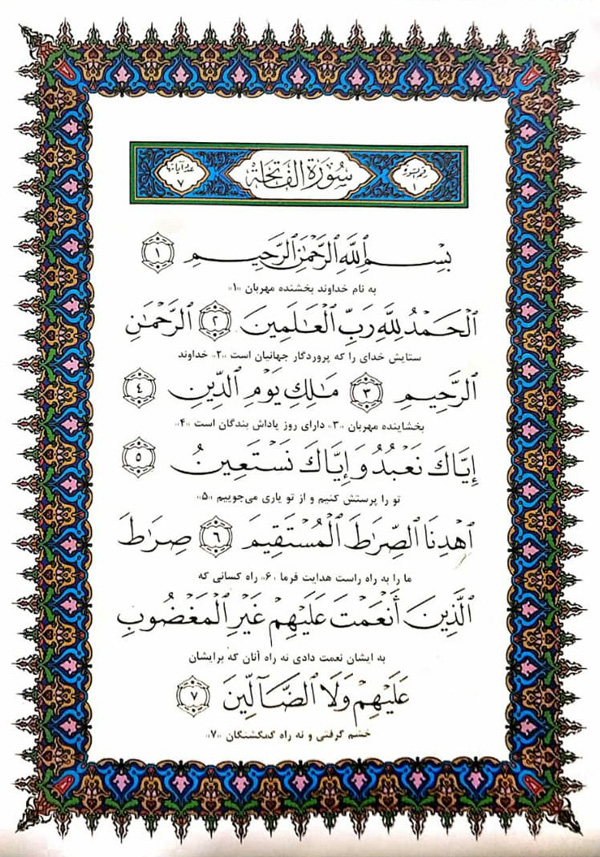 رقم السورة ١
سُورَةُ الفَاتِحَةِ
عدد آياتها ٧
بِسْمِ اللَّهِ الرَّحْمَٰنِ الرَّحِيمِ ١
به نام خداوند بخشنده مهربان «۱»
الْحَمْدُ لِلَّهِ رَبِّ الْعَالَمِينَ ٢ الرَّحْمَٰنِ
ستایش خدای را که پروردگار جهانیان است «۲» خداوند
الرَّحِيمِ ٣ مَالِكِ يَوْمِ الدِّينِ ٤
بخشاینده مهربان «۳» دارای روز پاداش بندگان است «۴»
إِيَّاكَ نَعْبُدُ وَإِيَّاكَ نَسْتَعِينُ ٥
تو را پرستش کنیم و از تو یاری می‌جوییم «۵»
اهْدِنَا الصِّرَاطَ الْمُسْتَقِيمَ ٦ صِرَاطَ
ما را به راه راست هدایت فرما «۶» راه کسانی که
الَّذِينَ أَنْعَمْتَ عَلَيْهِمْ غَيْرِ الْمَغْضُوبِ
به ایشان نعمت دادی نه راه آنان که برایشان
عَلَيْهِمْ وَلَا الضَّآلِّينَ ٧
خشم گرفتی و نه راه گمگشتگان «۷»